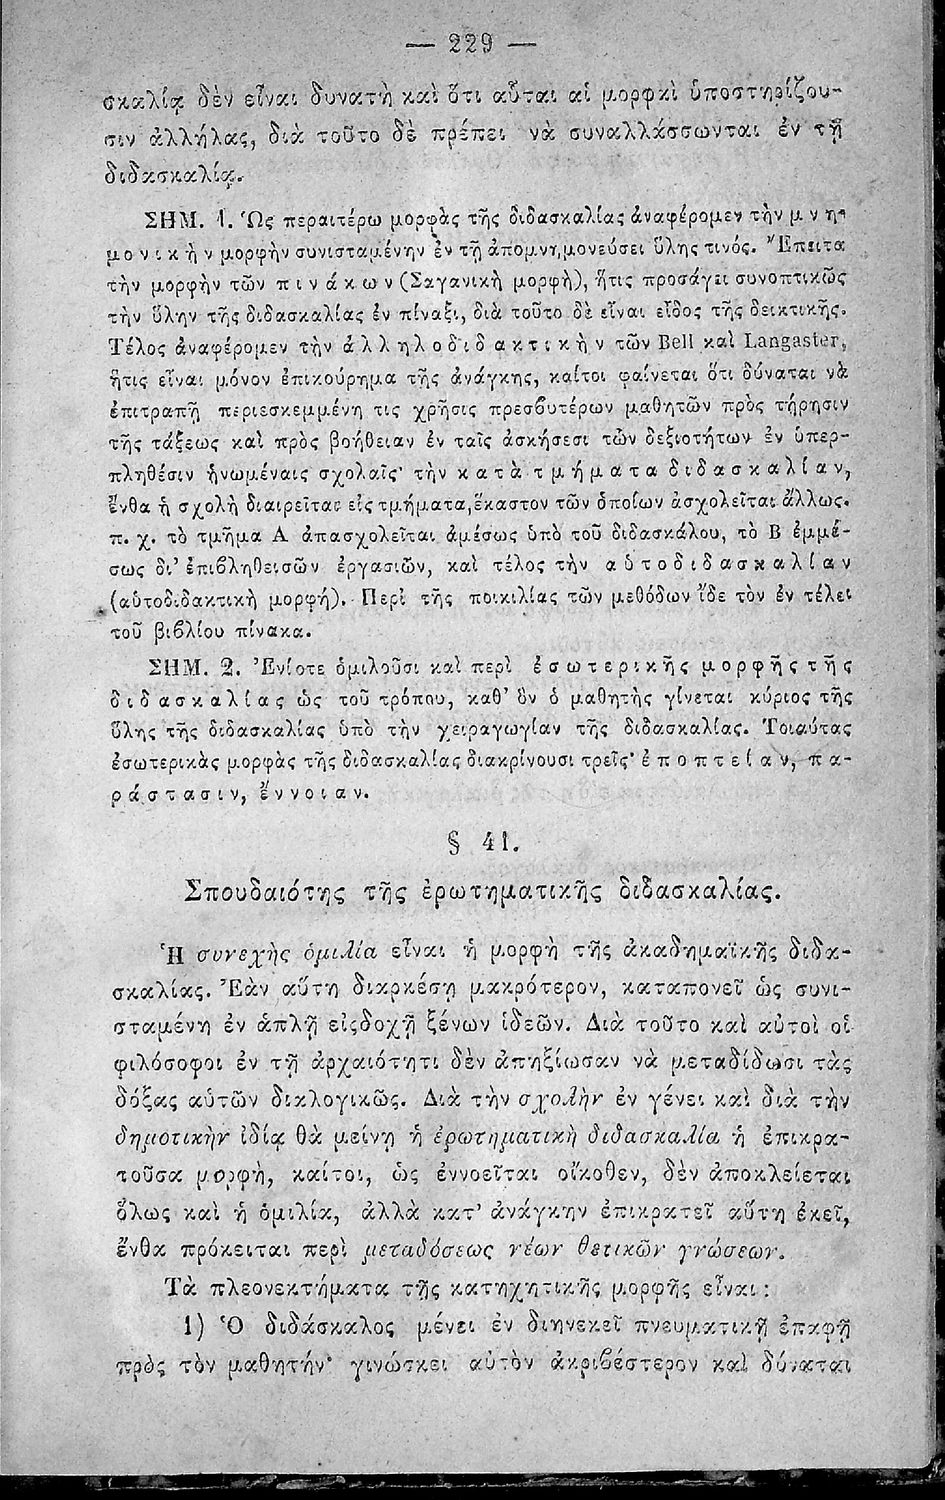 — 229 —
σκαλίᾳ δὲν εἶναι δυνατὴ καὶ ὅτι αὗται αἱ μορφαὶ ὑποστηρίζου-
σιν ἀλλήλας, διὰ τοῦτο δὲ πρέπει νὰ συναλλάσσωνται ἐν τῇ
διδασκαλίᾳ.
ΣΗΜ. 1. Ὡς περαιτέρω μορφὰς τῆς διδασκαλίας ἀναφέρομεν τὴν μνη-
μονικὴν μορφὴν συνισταμένην ἐν τῇ ἀπομνημονεύσει ὕλης τινός. Ἔπειτα
τὴν μορφὴν τῶν πινάκων (Σαγανικὴ μορφὴ), ἥτις προσάγει συνοπτικῶς
τὴν ὕλην τῆς διδασκαλίας ἐν πίναξι, διὰ τοῦτο δὲ εἶναι εἶδος τῆς δεικτικῆς.
Τέλος ἀναφέρομεν τὴν ἀλληλοδιδακτικὴν τῶν Bell καὶ Langaster,
ἥτις εἶναι μόνον ἐπικούρημα τῆς ἀνάγκης, καίτοι φαίνεται ὅτι δύναται νὰ
ἐπιτραπῇ περιεσκεμμένη τις χρῆσις πρεσβυτέρων μαθητῶν πρὸς τήρησιν
τῆς τάξεως καὶ πρὸς βοήθειαν ἐν ταῖς ἀσκήσεσι τῶν δεξιοτήτων ἐν ὑπερ-
πληθέσιν ἡνωμέναις σχολαῖς· τὴν κατὰ τμήματα διδασκαλίαν,
ἔνθα ἡ σχολὴ διαιρεῖται εἰς τμήματα, ἕκαστον τῶν ὁποίων ἀσχολεῖται ἄλλως.
π. χ. τὸ τμῆμα Α ἀπασχολεῖται ἀμέσως ὑπὸ τοῦ διδασκάλου, τὸ Β ἐμμέ-
σως δι' ἐπιβληθεισῶν ἐργασιῶν, καὶ τέλος τὴν αὐτοδιδασκαλίαν
(αὐτοδιδακτικὴ μορφή). Περὶ τῆς ποικιλίας τῶν μεθόδων ἴδε τὸν ἐν τέλει
τοῦ βιβλίου πίνακα.
ΣΗΜ. 2. Ἐνίοτε ὁμιλοῦσι καὶ περὶ ἐσωτερικῆς μορφῆς τῆς
διδασκαλίας ὡς τοῦ τρόπου, καθ' ὃν ὁ μαθητὴς γίνεται κύριος τῆς
ὕλης τῆς διδασκαλίας ὑπὸ τὴν χειραγωγίαν τῆς διδασκαλίας. Τοιαύτας
ἐσωτερικὰς μορφὰς τῆς διδασκαλίας διακρίνουσι τρεῖς· ἐποπτείαν, πα-
ράστασιν, ἔννοιαν.
§ 41.
Σπουδαιότης τῆς ἐρωτηματικῆς διδασκαλίας.
Ἡ συνεχὴς ὁμιλία εἶναι ἡ μορφὴ τῆς ἀκαδημαϊκῆς διδα-
σκαλίας. Ἐὰν αὕτη διαρκέσῃ μακρότερον, καταπονεῖ ὡς συνι-
σταμένη ἐν ἁπλῇ εἰςδοχῇ ξένων ἰδεῶν. Διὰ τοῦτο καὶ αὐτοὶ οἱ
φιλόσοφοι ἐν τῇ ἀρχαιότητι δὲν ἀπηξίωσαν νὰ μεταδίδωσι τὰς
δόξας αὑτῶν διαλογικῶς. Διὰ τὴν σχολὴν ἐν γένει καὶ διὰ τὴν
δημοτικὴν ἰδίᾳ θὰ μείνῃ ἡ ἐρωτηματικὴ διδασκαλία ἡ ἐπικρα-
τοῦσα μορφὴ, καίτοι, ὡς ἐννοεῖται οἴκοθεν, δὲν ἀποκλείεται
ὅλως καὶ ἡ ὁμιλία, ἀλλὰ κατ' ἀνάγκην ἐπικρατεῖ αὕτη ἐκεῖ,
ἔνθα πρόκειται περὶ μεταδόσεως νέων θετικῶν γνώσεων.
Τὰ πλεονεκτήματα τῆς κατηχητικῆς μορφῆς εἶναι :
1) Ὁ διδάσκαλος μένει ἐν διηνεκεῖ πνευματικῇ ἐπαφῇ
πρὸς τὸν μαθητήν· γινώσκει αὐτὸν ἀκριβέστερον καὶ δύναται